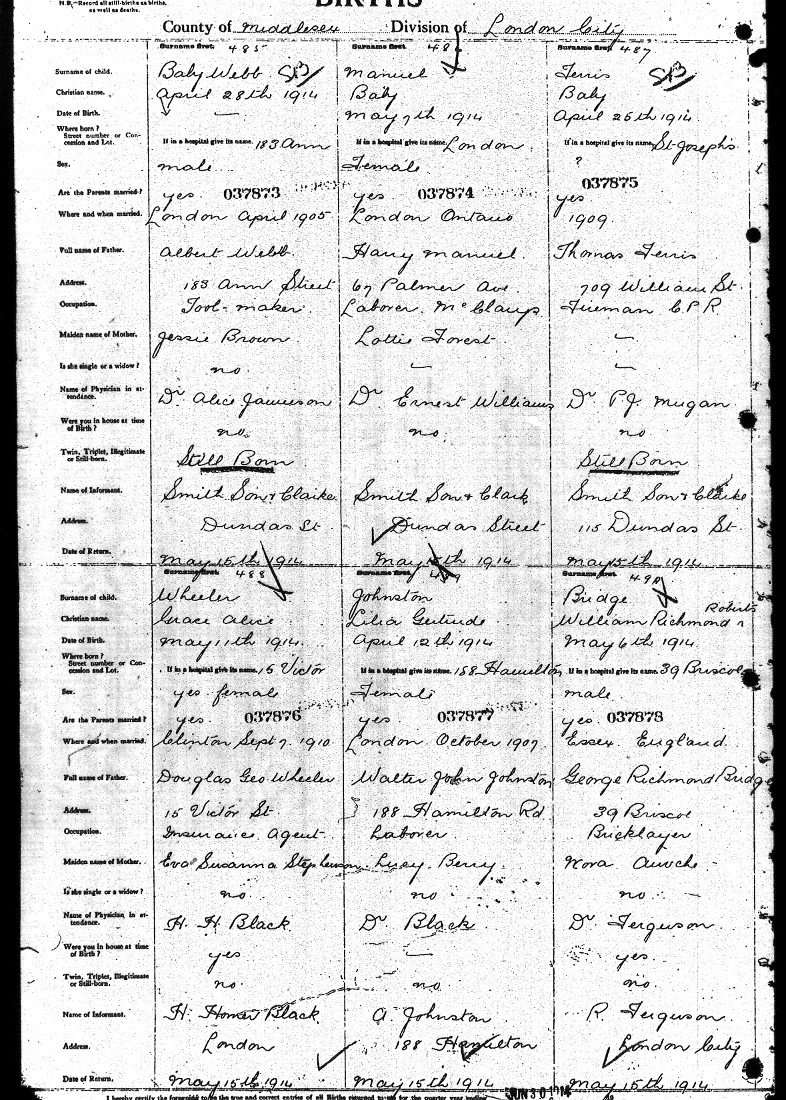 N.B.—Record all still-births as births, as well as deaths.
BIRTHS
County of Middlesex Division of London City
Surname first. 485 Surname first. 48 Surname first. 487
Surname of child. Baby Webb SB Manuel Ferris SB
Christian name. April 28th 1914 Baby Baby
Date of Birth. — May 7th 1914 April 25th 1914
Where born?
Street number or Concession and Lot. If in a hospital give its name. 183 Ann If in a hospital give its name. London If in a hospital give its name. St Joseph's
Sex. male Female ?
Are the Parents married? yes 037873 yes 037874 yes 037875
Where and when married. London April 1905 London Ontario 1909
Full name of Father. Albert Webb Harry Manuel Thomas Ferris
Address. 183 Ann Street 67 Palmer Ave. 709 William St.
Occupation. Tool-maker Laborer. Fireman C.P.R.
Maiden name of Mother. Jessie Brown Lottie Forest —
Is she single or a widow? no — —
Name of Physician in attendance. Dr Alice Jamieson Dr Ernest Williams Dr P.J. Mugan
Were you in house at time of Birth? no no no
Twin, Triplet, Illegitimate or Still-born. Still Born Still Born
Name of Informant. Smith Son & Clarke Smith Son & Clark Smith Son & Clarke
Address. Dundas St Dundas Street 115 Dundas St.
Date of Return. May 15th 1914 May 15th 1914 May 15th 1914
Surname first. 488 Surname first. Surname first. 490
Surname of child. Wheeler Johnston Bridge
Christian name. Grace Alice Lilia Gertrude William Richmond Roberts
Date of Birth. May 11th 1914 April 12th 1914 May 6th 1914
Where born?
Street number or Concession and Lot. If in a hospital give its name. 15 Victor If in a hospital give its name. 188 Hamilton If in a hospital give its name. 39 Briscoe
Sex. yes female Female male
Are the Parents married? yes 037876 yes 037877 yes 037878
Where and when married. Clinton Sept 7. 1910 London October 1907 Essex England
Full name of Father. Douglas Geo Wheeler Walter John Johnston George Richmond Bridge
Address. 15 Victor St. 188 Hamilton Rd 39 Briscoe
Occupation. Insurance Agent Laborer. Bricklayer
Maiden name of Mother. Eva Susanna Stephenson Lucy Berry Nora
Is she single or a widow? no no no —
Name of Physician in attendance. H. H Black Dr Black Dr Ferguson
Were you in house at time of Birth? yes — yes
Twin, Triplet, Illegitimate or Still-born. no no no
Name of Informant. H. Homer Black A. Johnston R. Ferguson
Address. London 188 Hamilton London City
Date of Return. May 15th 1914 May 15th 1914 May 15th 1914
I hereby certify the foregoing to be the true and correct entries of all Births returned to me for the quarter year ending JUN 30 1914 19